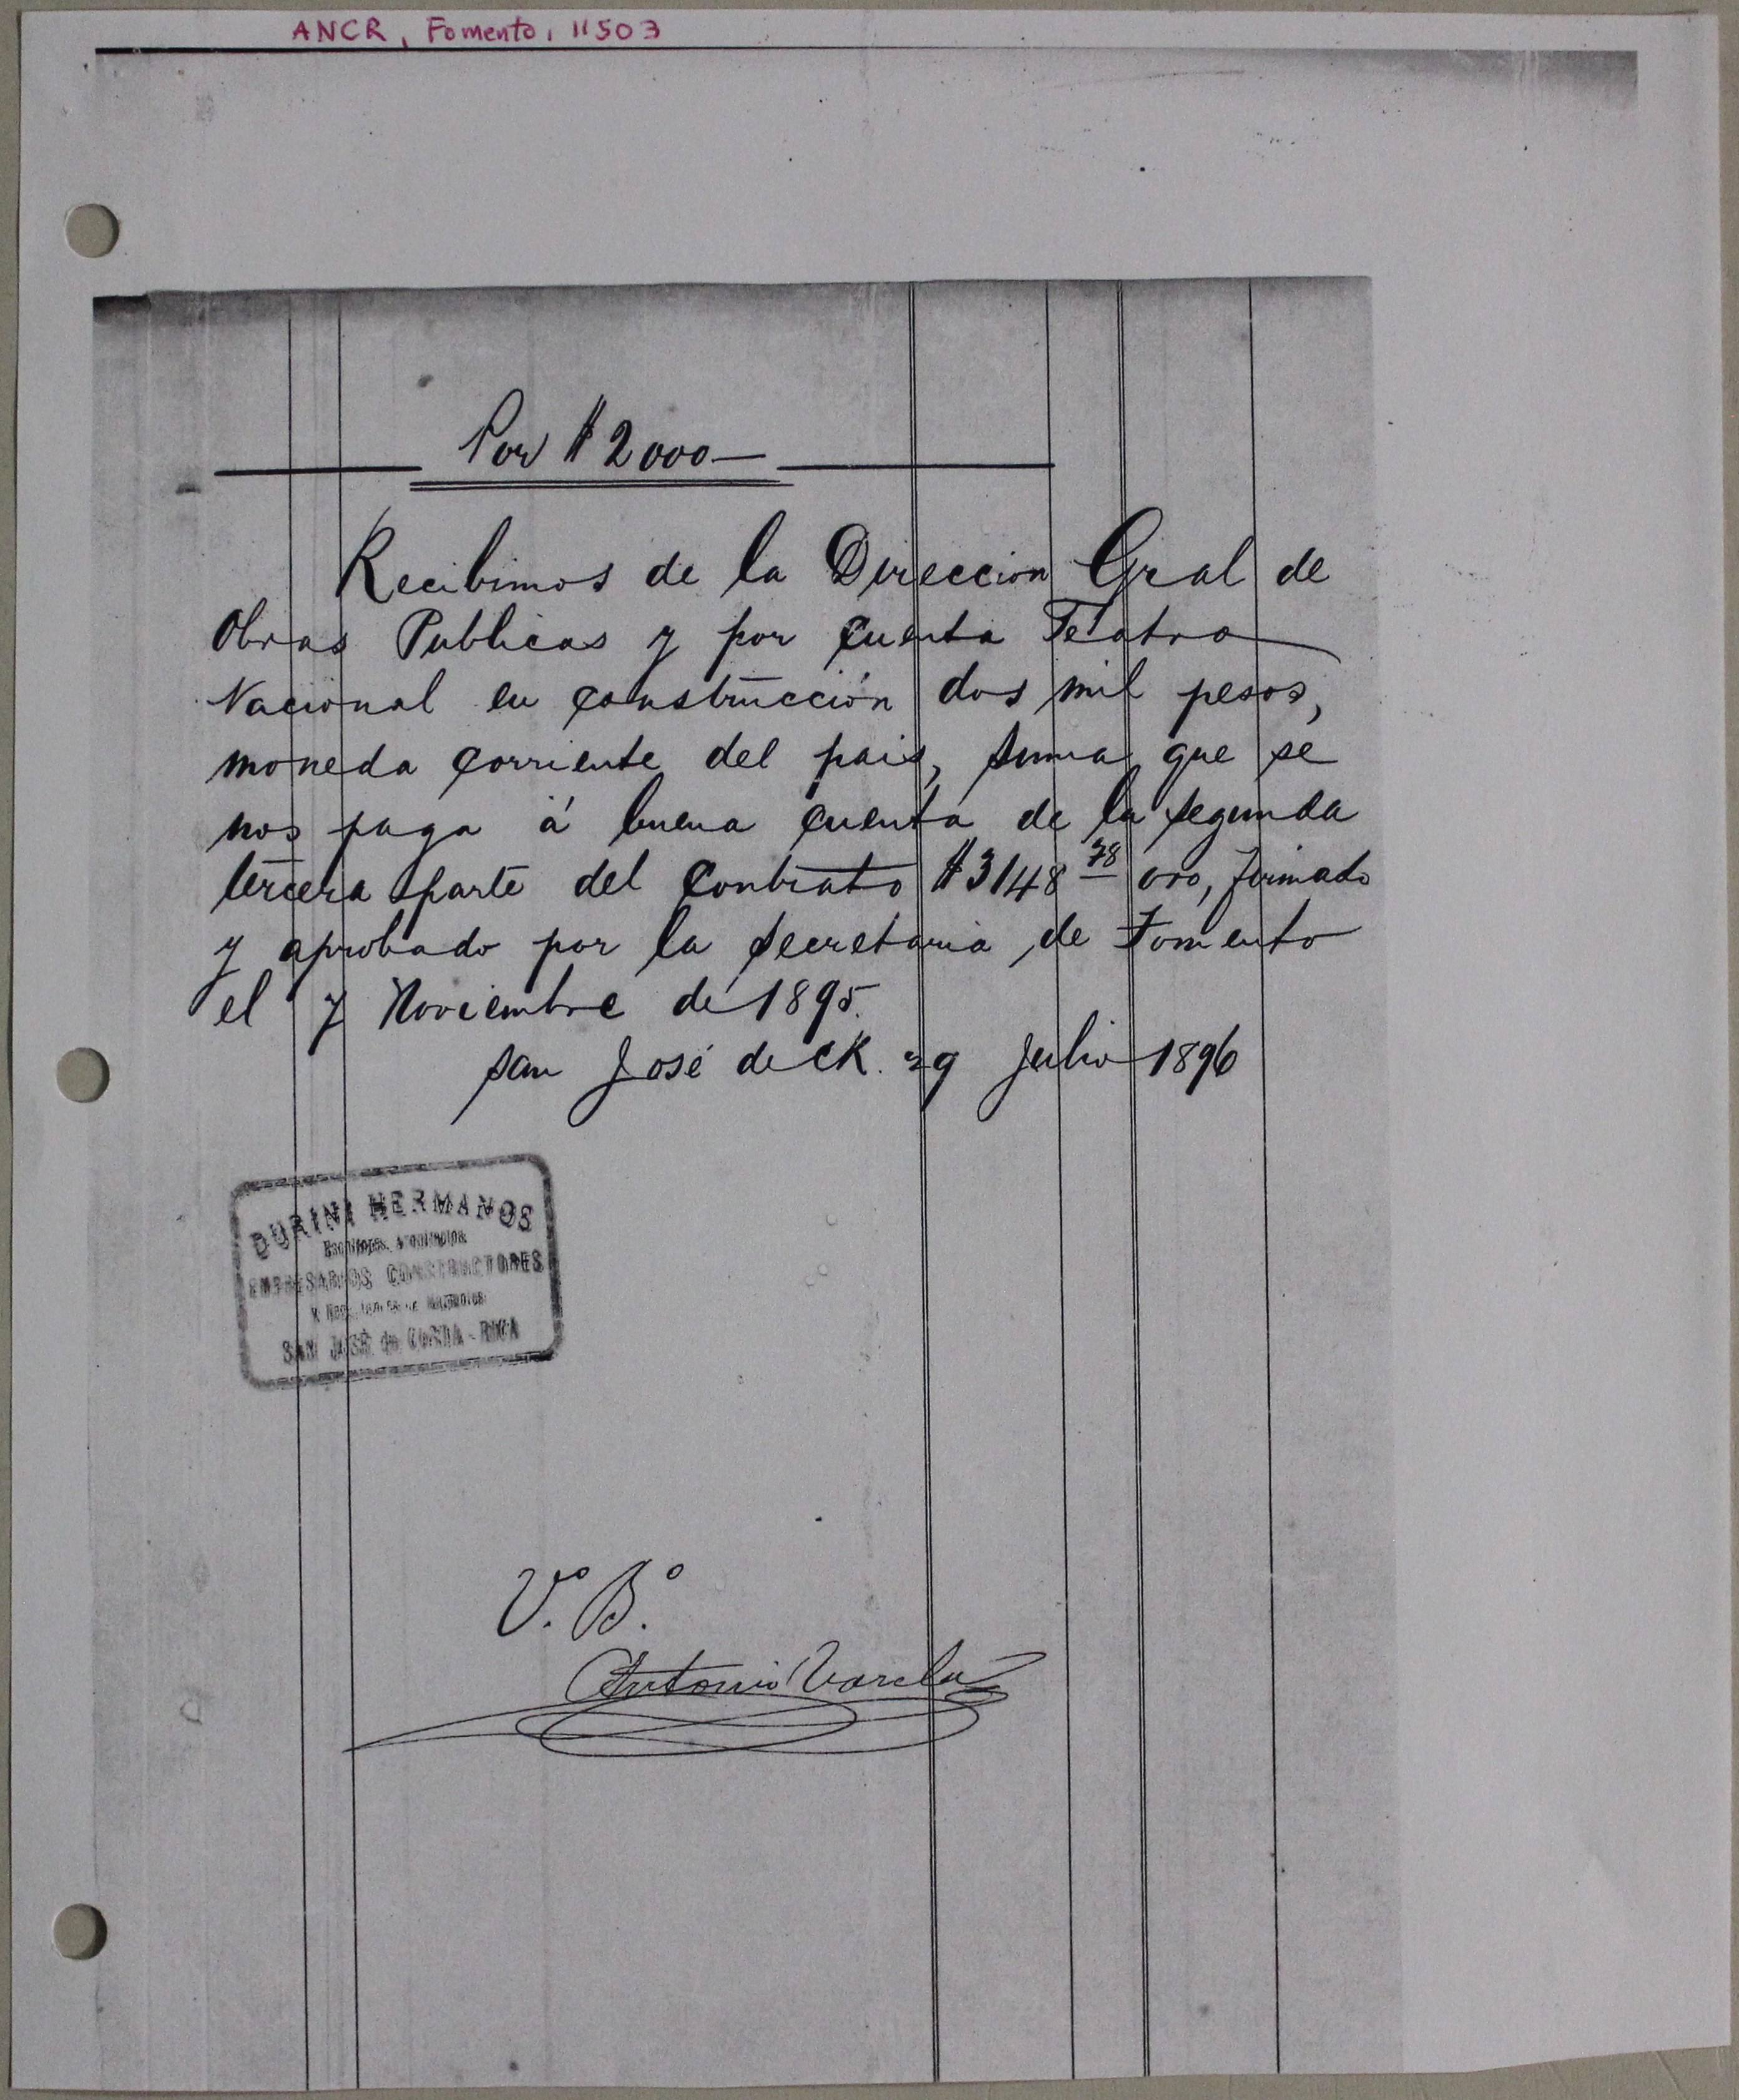 ANCR, Fomento, 11503
Por $ 2000—
Recibimos de la Direccion Gral de
Obras Publicas y por cuenta Teatro
Nacional en construcción dos mil pesos,
moneda corriente del pais, suma que se
nos paga á buena cuenta de la segunda
tercera parte del contrato $ 3148 78 oro, firmado
y aprobado por la secretaria de Fomento
el 7 Noviembre de 1895.
San José de CR. 29 Julio 1896
DURINI HERMANOS
EMPRESARIOS CONSTRUCTORES
SAN JOSÉ de COSTA-RICA
V.º B.º
Antonio Varela